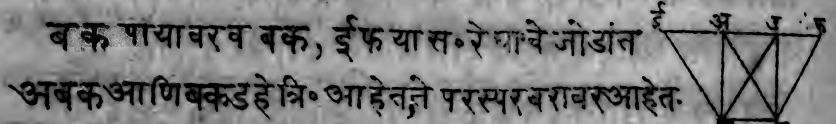 बक पायावरव बक, ईफ यास॰रेघांचे जोडांत
अबकआणिबकडहेत्रि॰आहेत,ते परस्परबराबरआहेत.
ई अ